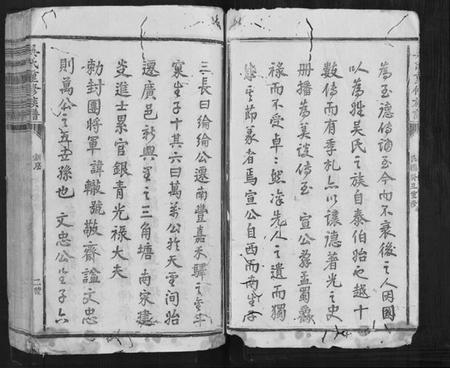 為至德傳詢至今而不衰後之人因國
以為姓吳氏之族自泰伯始也越十
數傳而有季札亦以讓德著光之史
冊播為美談傳至 宣公蘇孟蜀
祿而不受卓之興洿先人之遺而獨
忠節篆者焉宣公自西而南生子
三長曰綸綸公遷南豐嘉禾驛之李
家生子十其六曰萬萬公於天聖間始
遷廣邑新興里之三角塘南宋建
炎進士累官銀青光祿大夫
勅封團將軍諱轍號敬齋謚文忠
則萬公之五世孫也 文忠公生子六
吳氏重修族譜